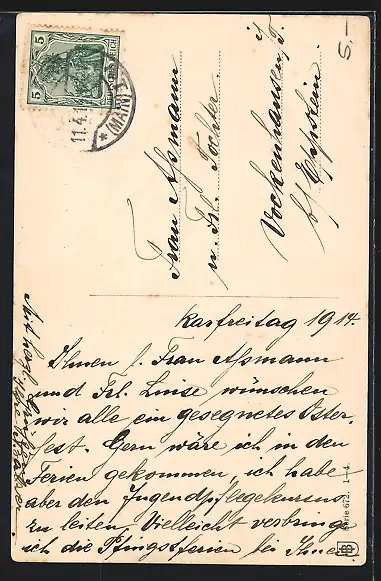 5 5
DEUTSCHES REICH
11.4.1
* (MAIN)
5.-
Frau Aßmann
u. Frl. Tochter.
Vockenhausen i. T.
b/ Eppstein.
Karfreitag 1914.
Ihnen l. Frau Aßmann
und Frl. Luise wünschen
wir alle ein gesegnetes Oster-
fest. Gern wäre ich in den
Ferien gekommen, ich habe
aber den Jugendpflegekursus
zu leiten. Vielleicht verbringe
ich die Pfingstferien bei Ihnen
Mit herzl.
Serie 672. 1-4.